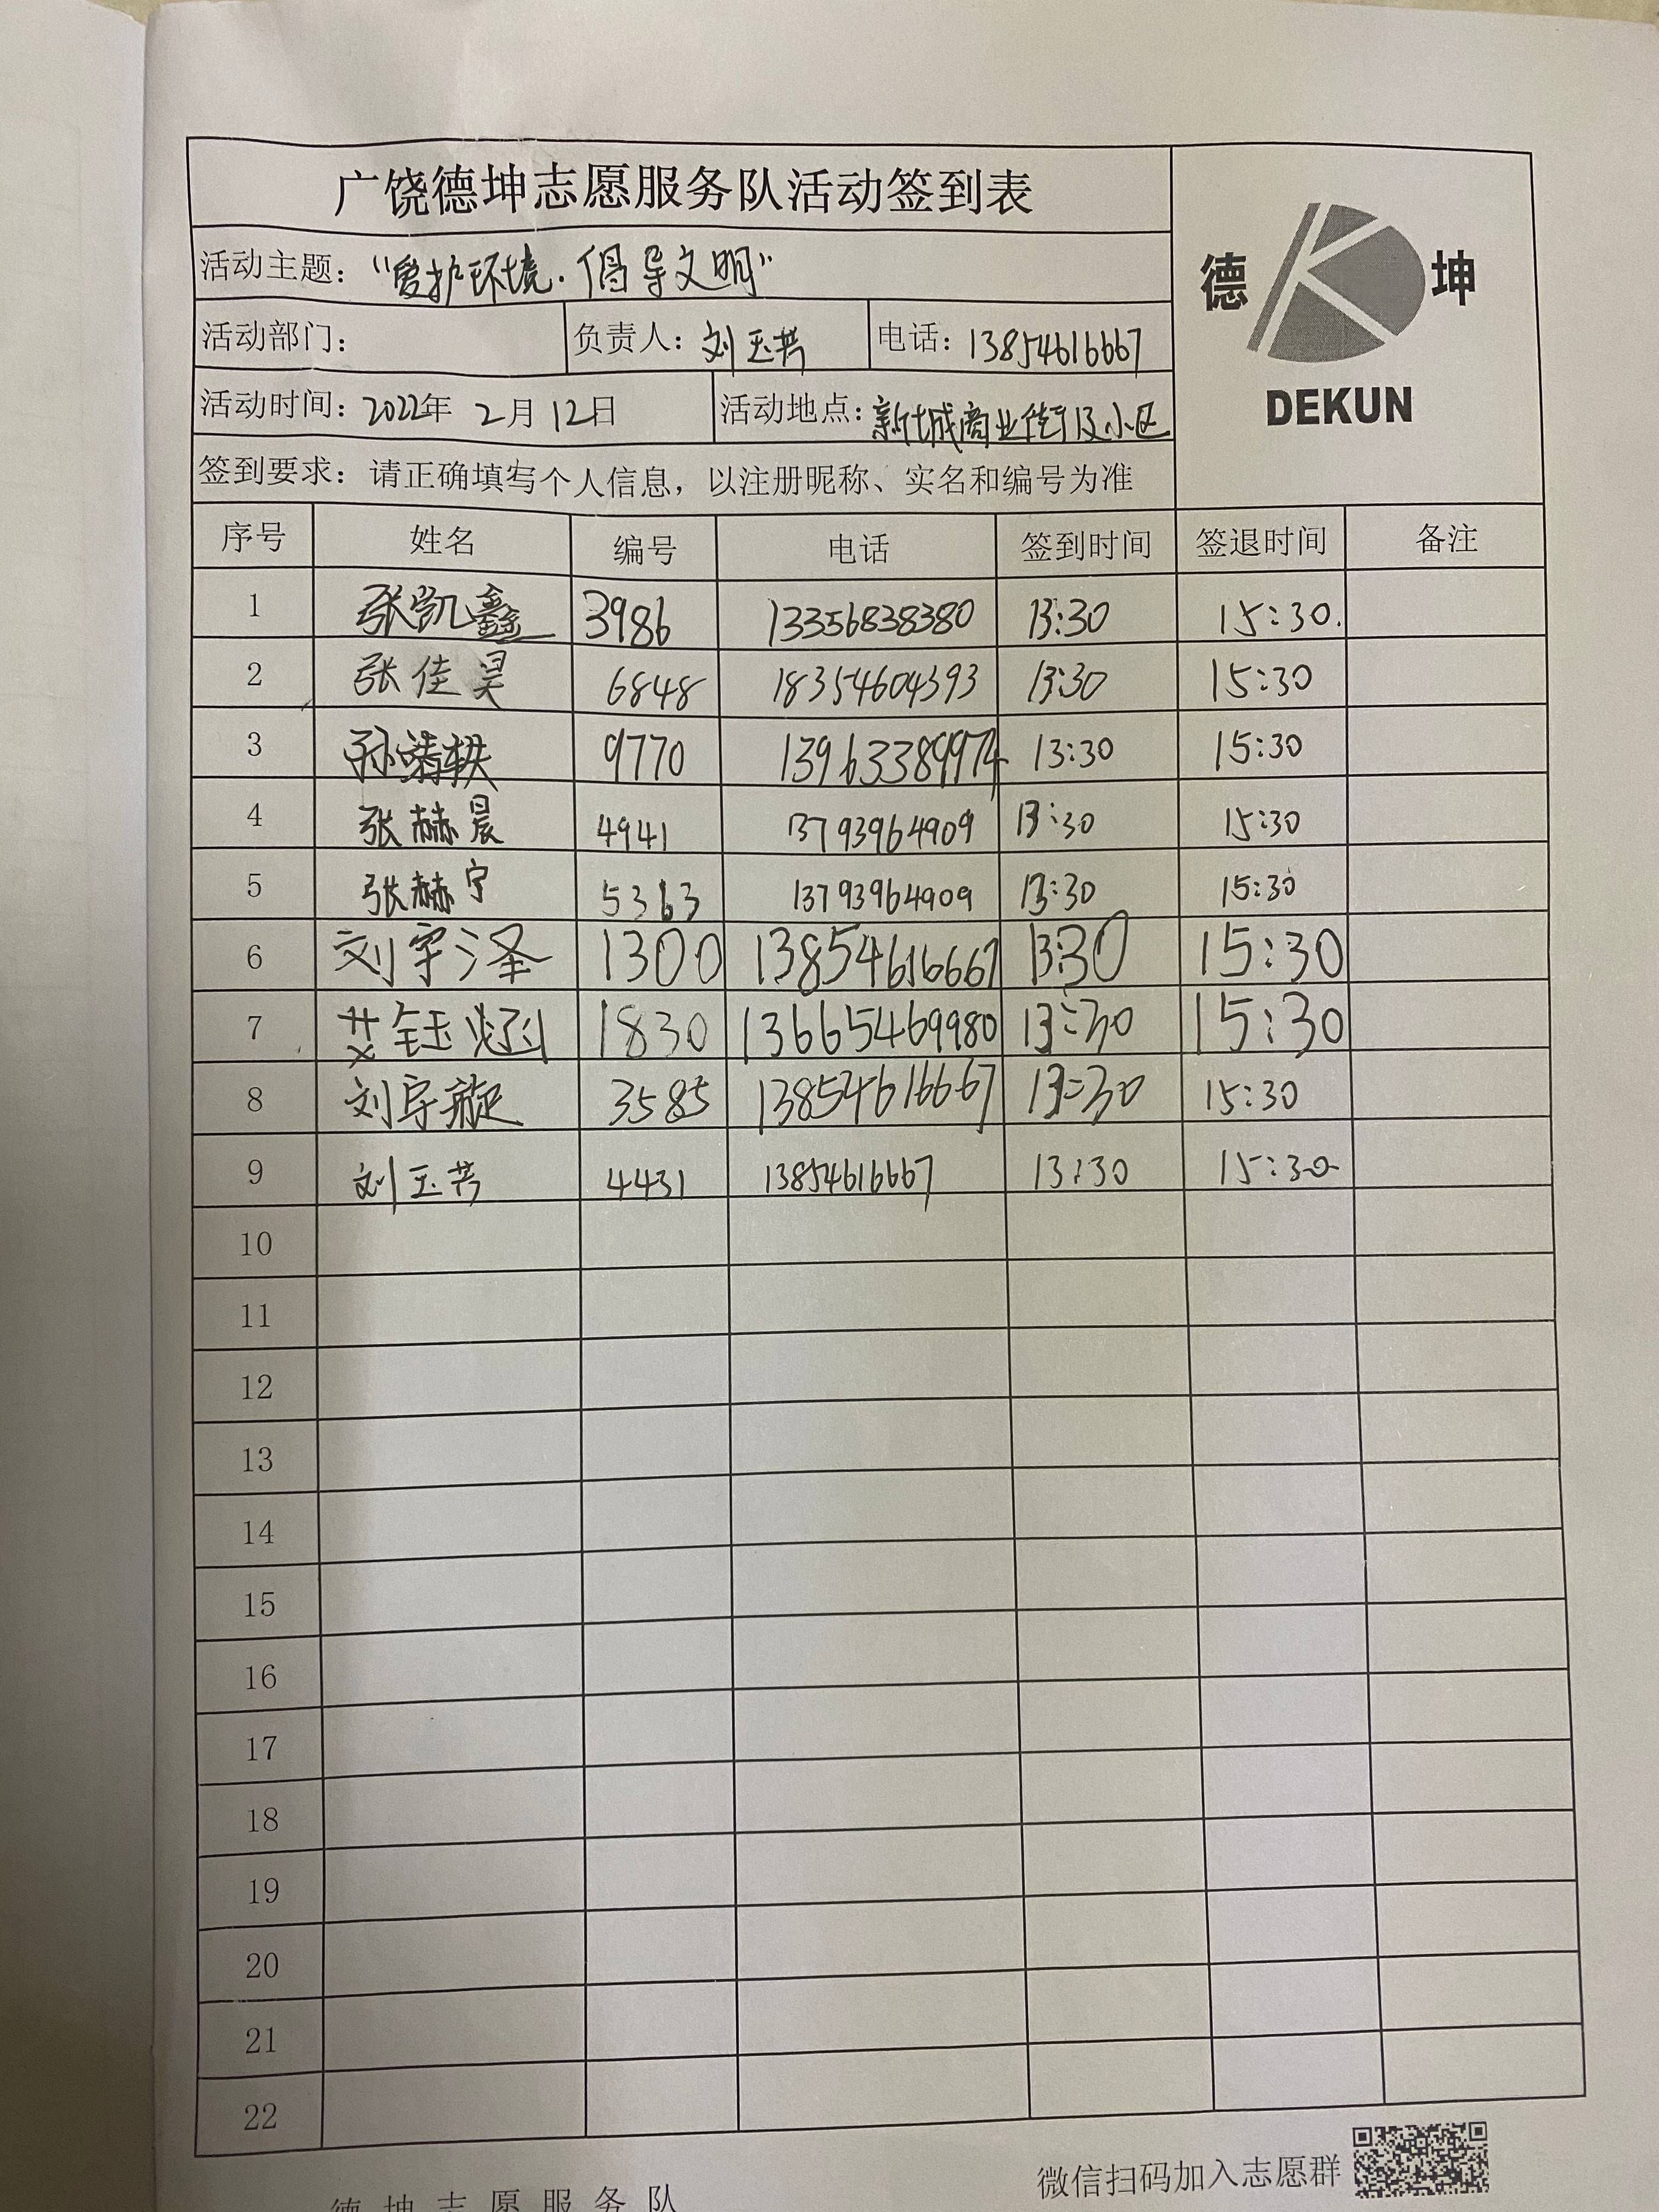 广饶德坤志愿服务队活动签到表
德 坤
DEKUN
活动主题："爱护环境.倡导文明"
活动部门： 负责人：刘玉芳 电话：13854616667
活动时间：2022年 2月 12日 活动地点：新城商业街及小区
签到要求：请正确填写个人信息，以注册昵称、实名和编号为准
序号 姓名 编号 电话 签到时间 签退时间 备注
1 张凯鑫 3986 13356838380 13:30 15:30.
2 张佳昊 6848 18354604393 13:30 15:30
3 孙靖轶 9770 13963389974 13:30 15:30
4 张赫晨 4941 13793964909 13:30 15:30
5 张赫宁 5363 13793964909 13:30 15:30
6 刘宇泽 1300 13854616667 13:30 15:30
7 艾钰 1830 13665469980 13:30 15:30
8 刘宇璇 3585 13854616667 13:30 15:30
9 刘玉芳 4431 13854616667 13:30 15:30
10
11
12
13
14
15
16
17
18
19
20
21
22
微信扫码加入志愿群
德坤志愿服务队